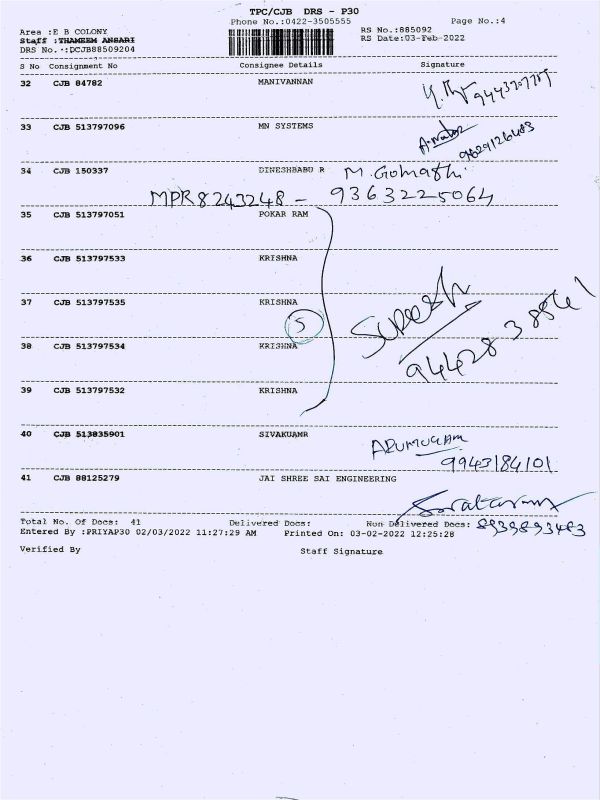 TPC/CJB DRS - P30
Phone No.:0422-3505555 Page No.:4
Area :E B COLONY RS No.:885092
Staff :THAMEEM ANSARI RS Date:03-Feb-2022
DRS No.:DCJB88509204
S No Consignment No Consignee Details Signature
32 CJB 84782 MANIVANNAN
33 CJB 513797096 MN SYSTEMS
9629126483
34 CJB 150337 DINESHBABU R M. Gomathi
MPR8243248 - 9363225064
35 CJB 513797051 POKAR RAM
36 CJB 513797533 KRISHNA
37 CJB 513797535 KRISHNA
5 Suresh
38 CJB 513797534 KRISHNA 9442838861
39 CJB 513797532 KRISHNA
40 CJB 513835901 SIVAKUAMR ARUMUGAM
9943184101
41 CJB 88125279 JAI SHREE SAI ENGINEERING
Total No. Of Docs: 41 Delivered Docs: Non Delivered Docs: 8939893483
Entered By :PRIYAP30 02/03/2022 11:27:29 AM Printed On: 03-02-2022 12:25:28
Verified By Staff Signature